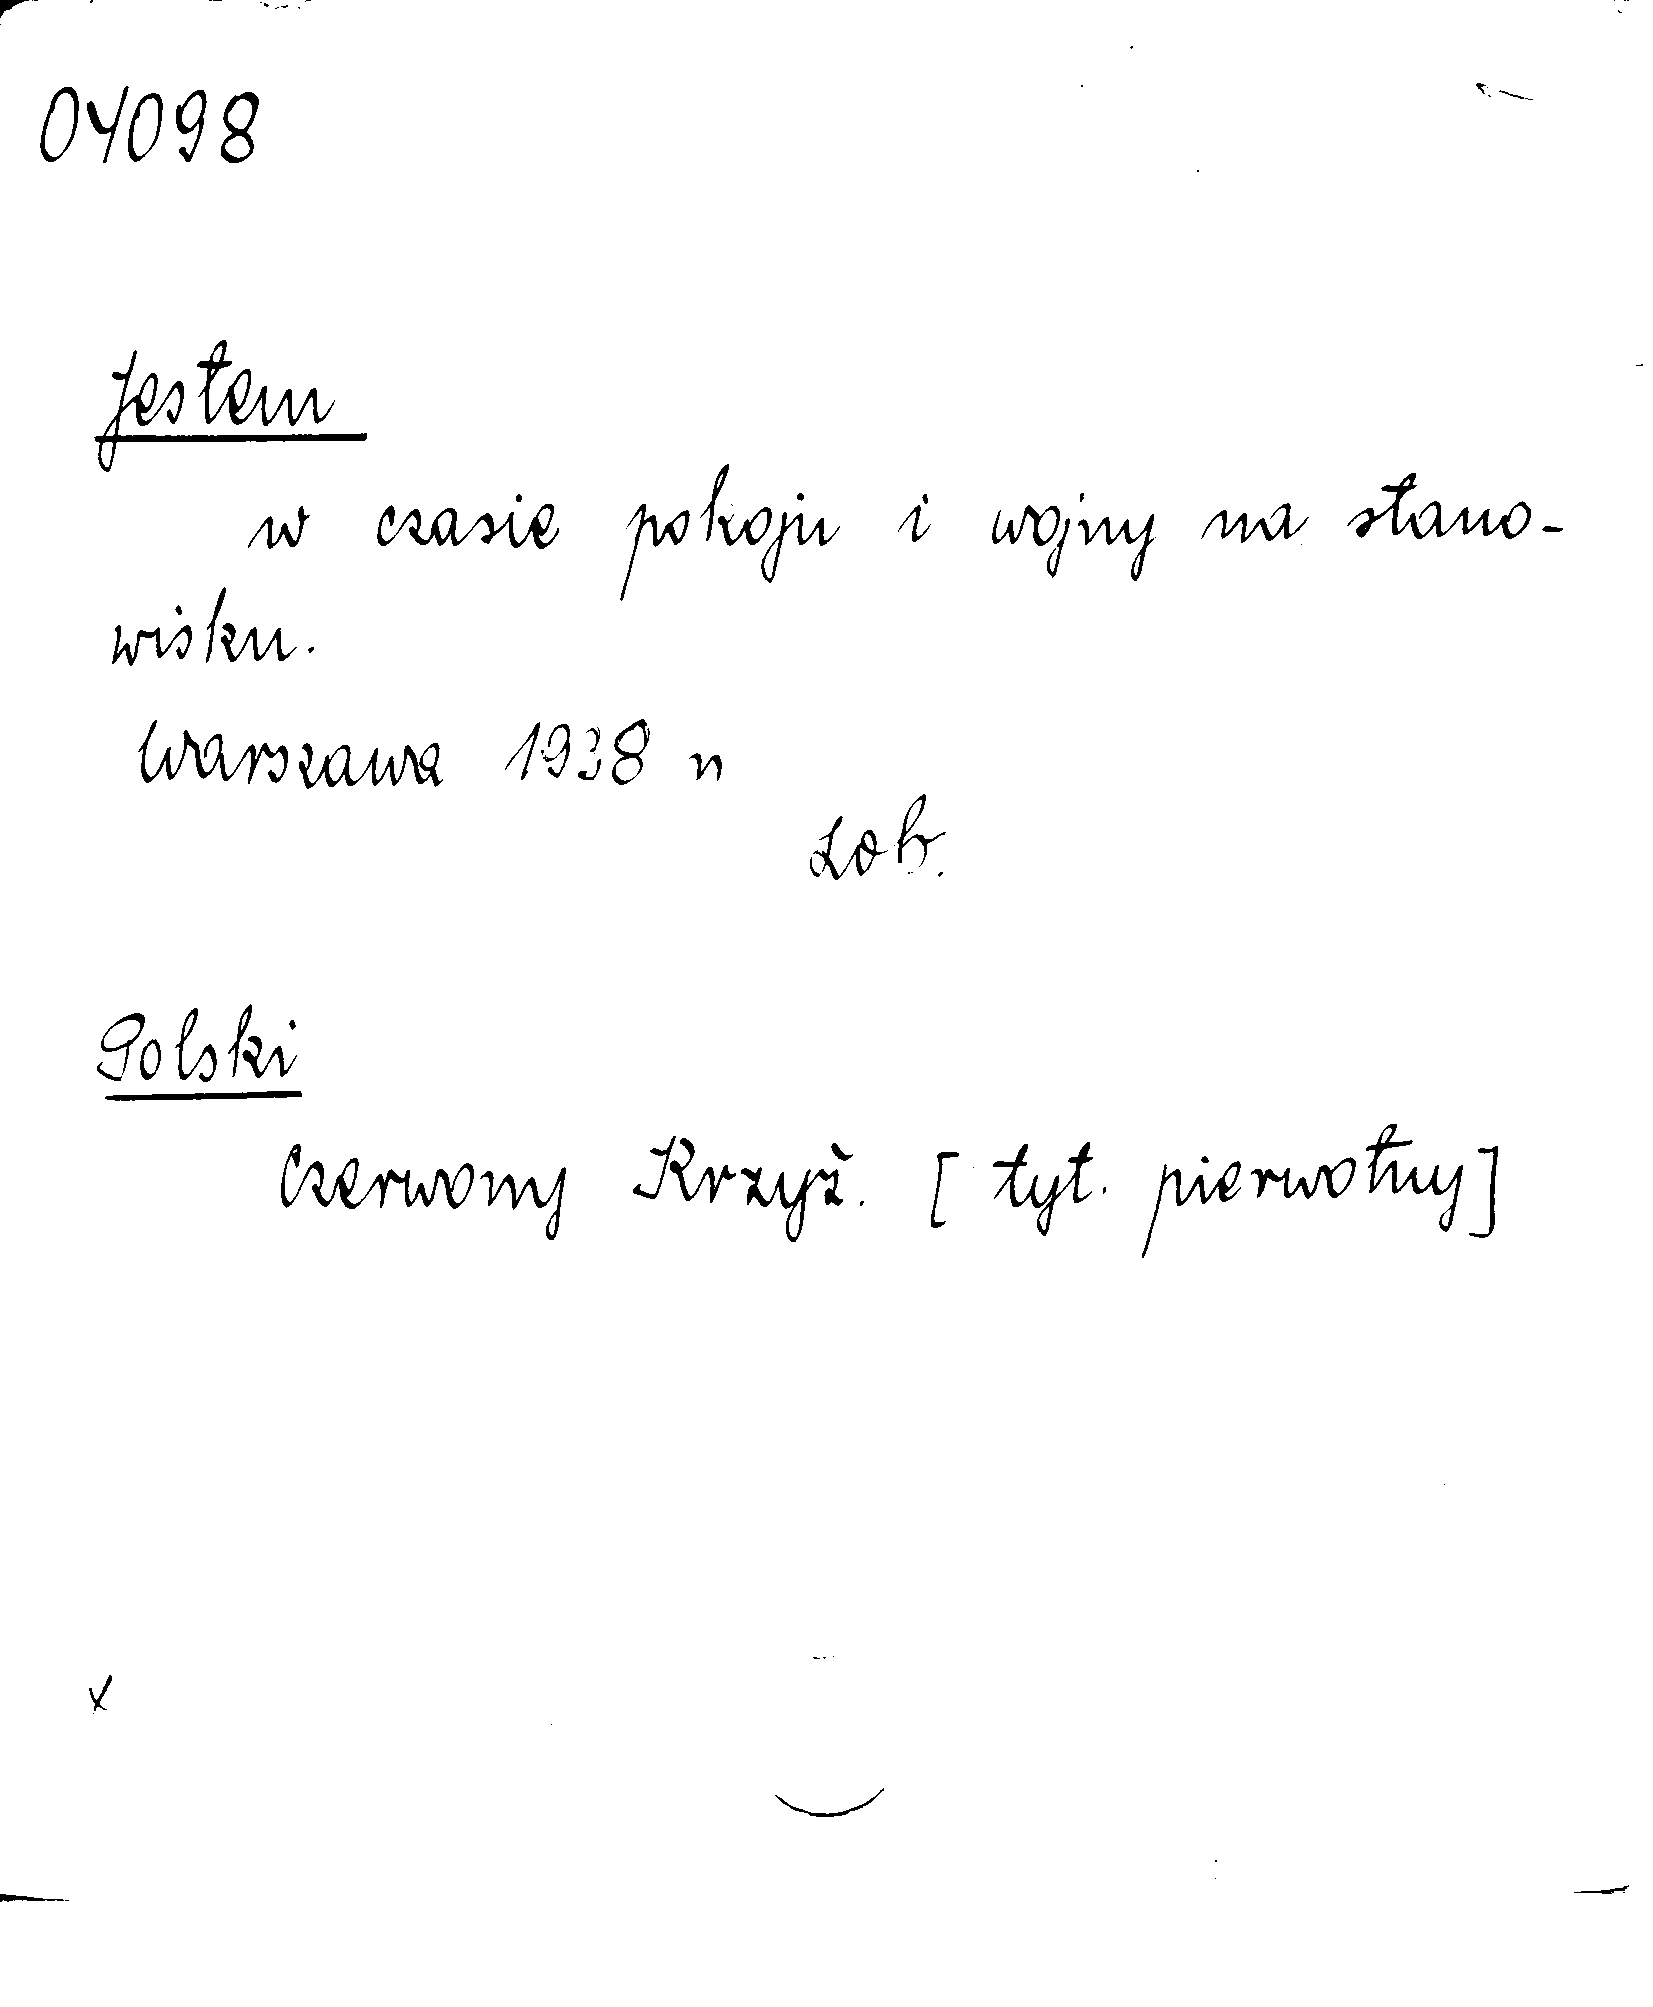 04098
Jestem
w czasie pokoju i wojny na stano-
wisku.
Warszawa 1938
zob.
Polski
Czerwony Krzyż. [tyt. pierwotny]
x